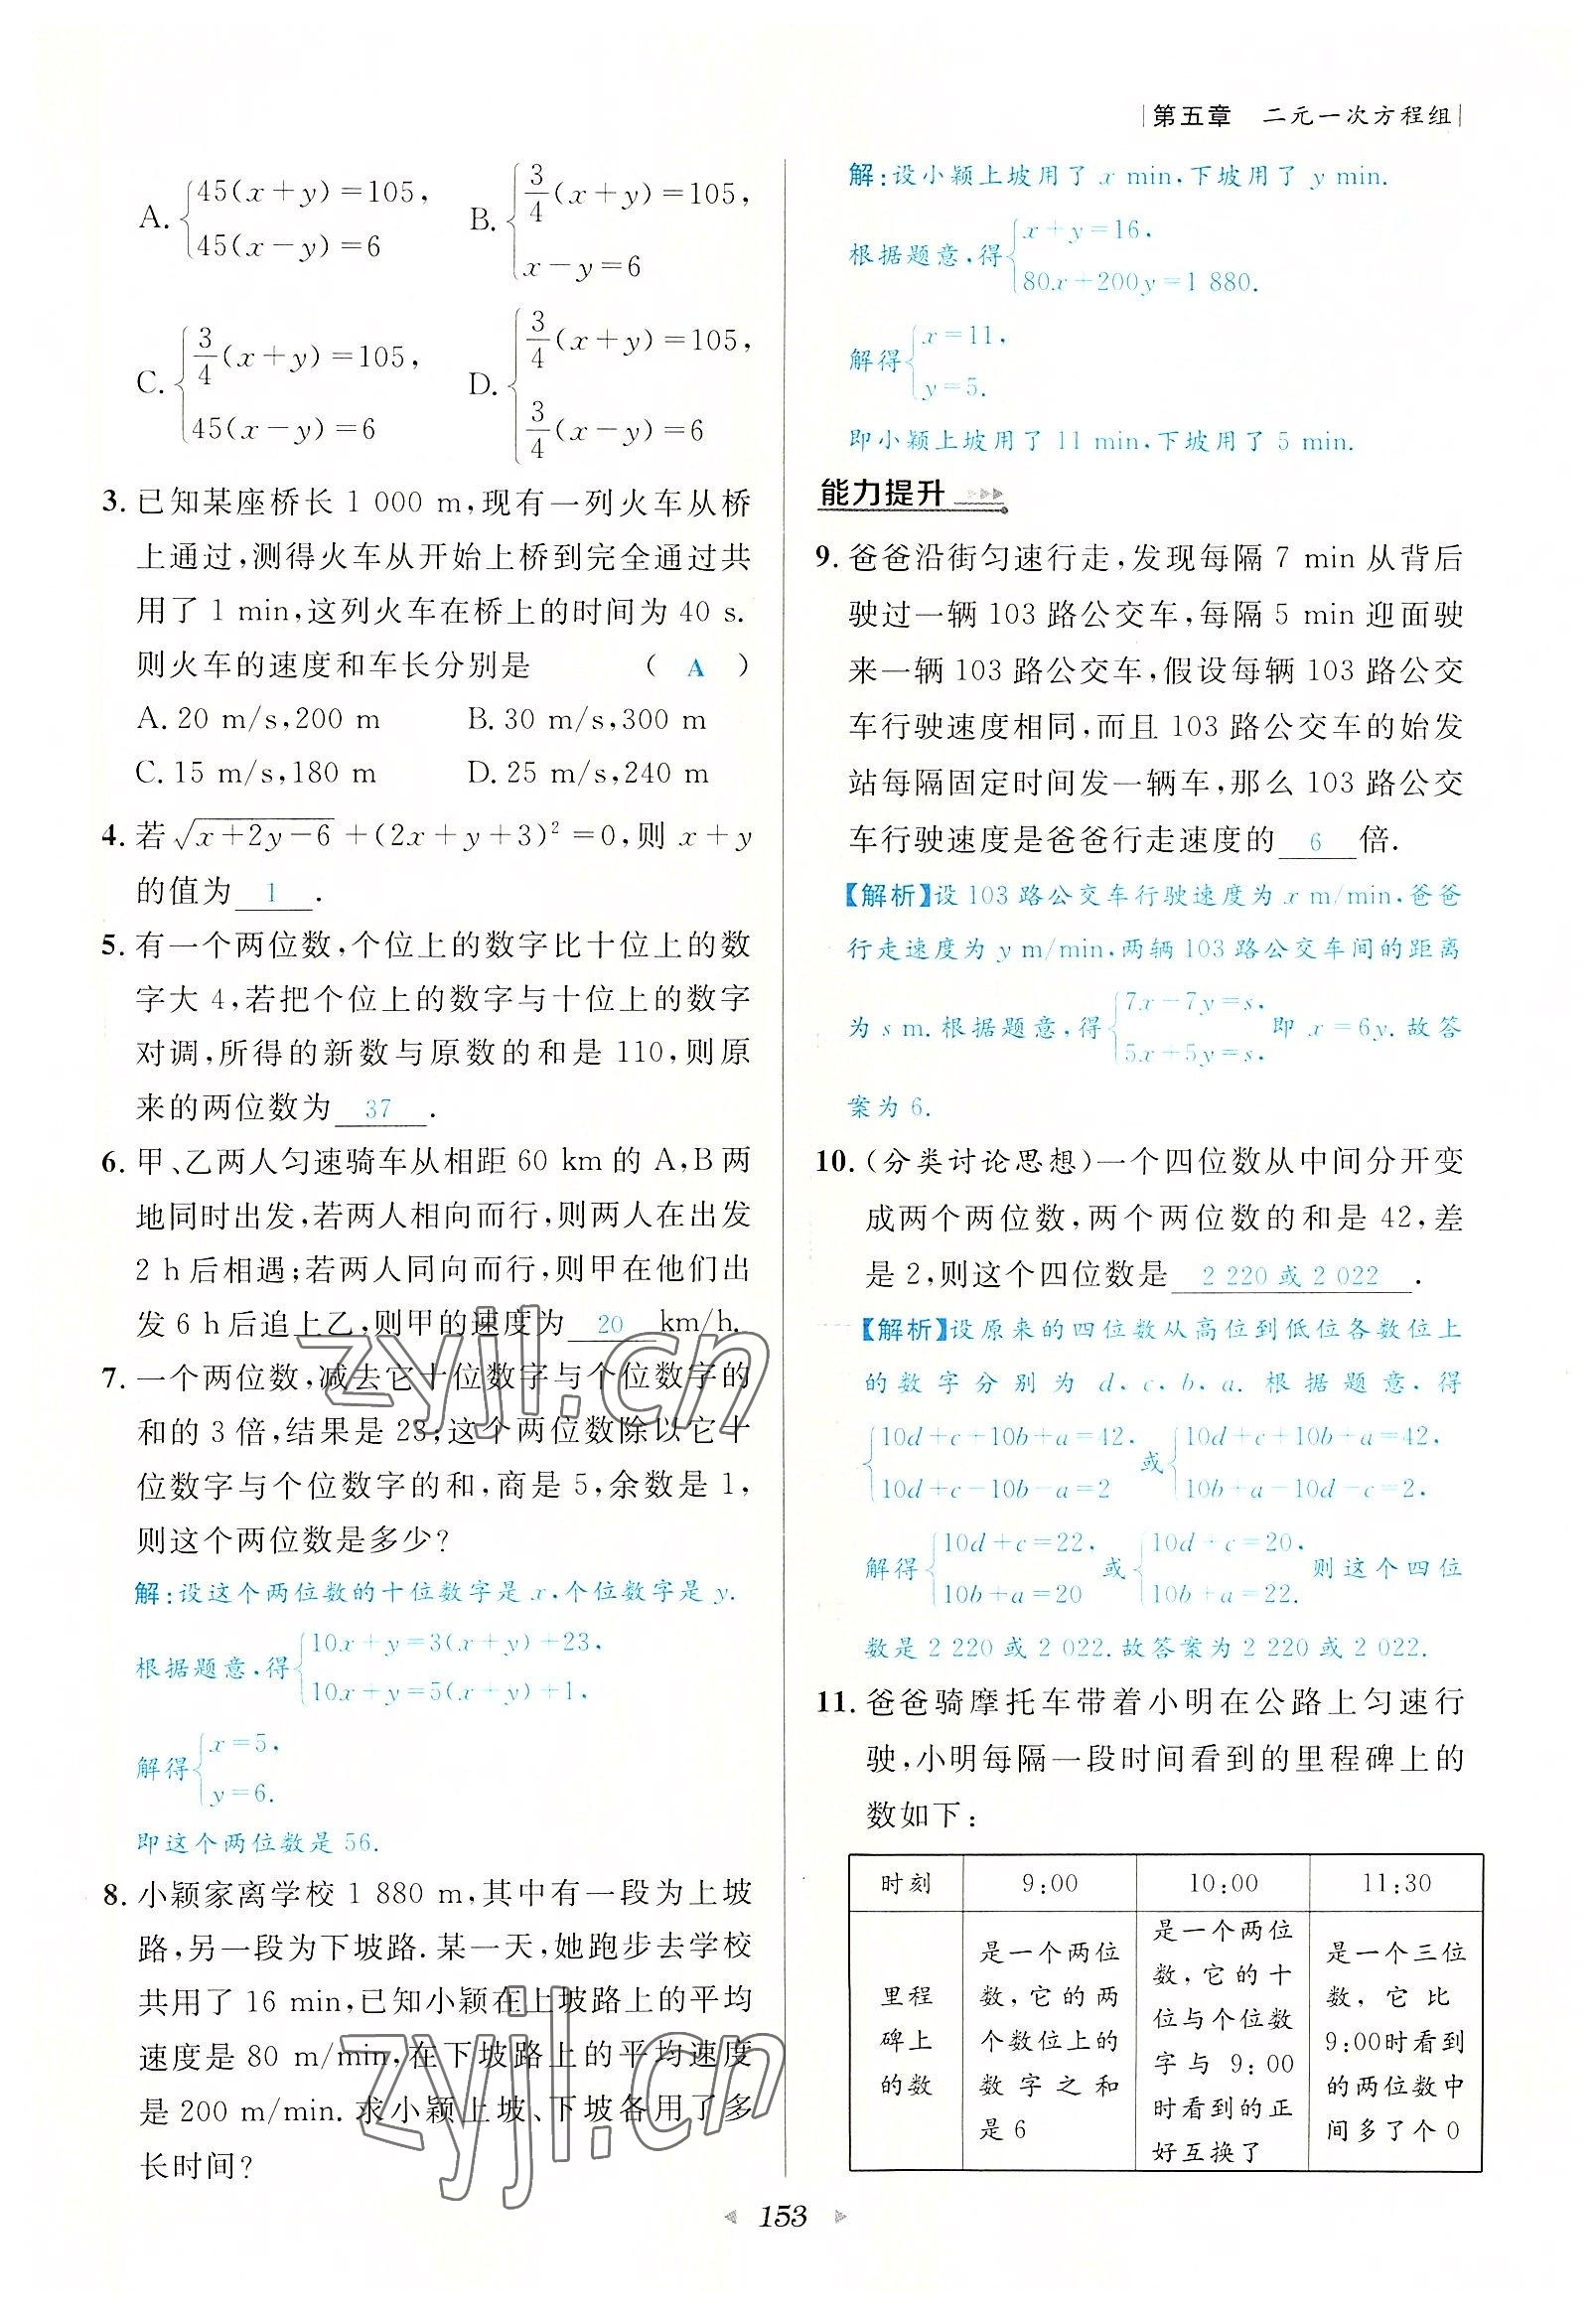 第五章 二元一次方程组
A. {45(x+y)=105, 45(x-y)=6
B. {3/4(x+y)=105, x-y=6
C. {3/4(x+y)=105, 45(x-y)=6
D. {3/4(x+y)=105, 3/4(x-y)=6
3. 已知某座桥长 1 000 m,现有一列火车从桥
上通过,测得火车从开始上桥到完全通过共
用了 1 min,这列火车在桥上的时间为 40 s.
则火车的速度和车长分别是 ( A )
A. 20 m/s,200 m B. 30 m/s,300 m
C. 15 m/s,180 m D. 25 m/s,240 m
4. 若√(x+2y-6)+(2x+y+3)²=0,则 x+y
的值为 1 .
5. 有一个两位数,个位上的数字比十位上的数
字大 4,若把个位上的数字与十位上的数字
对调,所得的新数与原数的和是 110,则原
来的两位数为 37 .
6. 甲、乙两人匀速骑车从相距 60 km 的 A,B 两
地同时出发,若两人相向而行,则两人在出发
2 h 后相遇;若两人同向而行,则甲在他们出
发 6 h 后追上乙,则甲的速度为 20 km/h.
7. 一个两位数,减去它十位数字与个位数字的
和的 3 倍,结果是 23;这个两位数除以它十
位数字与个位数字的和,商是 5,余数是 1,
则这个两位数是多少?
解:设这个两位数的十位数字是 x,个位数字是 y.
根据题意,得{10x+y=3(x+y)+23, 10x+y=5(x+y)+1,
解得{x=5, y=6.
即这个两位数是 56.
8. 小颖家离学校 1 880 m,其中有一段为上坡
路,另一段为下坡路. 某一天,她跑步去学校
共用了 16 min,已知小颖在上坡路上的平均
速度是 80 m/min,在下坡路上的平均速度
是 200 m/min. 求小颖上坡、下坡各用了多
长时间?
解:设小颖上坡用了 x min,下坡用了 y min.
根据题意,得{x+y=16, 80x+200y=1 880.
解得{x=11, y=5.
即小颖上坡用了 11 min,下坡用了 5 min.
能力提升
9. 爸爸沿街匀速行走,发现每隔 7 min 从背后
驶过一辆 103 路公交车,每隔 5 min 迎面驶
来一辆 103 路公交车,假设每辆 103 路公交
车行驶速度相同,而且 103 路公交车的始发
站每隔固定时间发一辆车,那么 103 路公交
车行驶速度是爸爸行走速度的 6 倍.
【解析】设 103 路公交车行驶速度为 x m/min,爸爸
行走速度为 y m/min,两辆 103 路公交车间的距离
为 s m. 根据题意,得{7x-7y=s, 5x+5y=s, 即 x=6y. 故答
案为 6.
10. (分类讨论思想)一个四位数从中间分开变
成两个两位数,两个两位数的和是 42,差
是 2,则这个四位数是 2 220 或 2 022 .
【解析】设原来的四位数从高位到低位各数位上
的数字分别为 d、c、b、a. 根据题意,得
{10d+c+10b+a=42, 10d+c-10b-a=2 或{10d+c+10b+a=42, 10b+a-10d-c=2,
解得{10d+c=22, 10b+a=20 或{10d+c=20, 10b+a=22. 则这个四位
数是 2 220 或 2 022. 故答案为 2 220 或 2 022.
11. 爸爸骑摩托车带着小明在公路上匀速行
驶,小明每隔一段时间看到的里程碑上的
数如下:
时刻 9:00 10:00 11:30
里程
碑上
的数
是一个两位
数,它的两
个数位上的
数字之和
是 6
是一个两位
数,它的十
位与个位数
字与 9:00
时看到的正
好互换了
是一个三位
数,它比
9:00时看到
的两位数中
间多了个 0
153
zyjl.cn
zyjl.cn